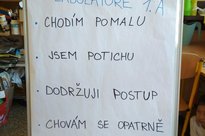 1.A
· CHODÍM POMALU
· JSEM POTICHU
· DODRŽUJI POSTUP
· CHOVÁM SE OPATRNĚ